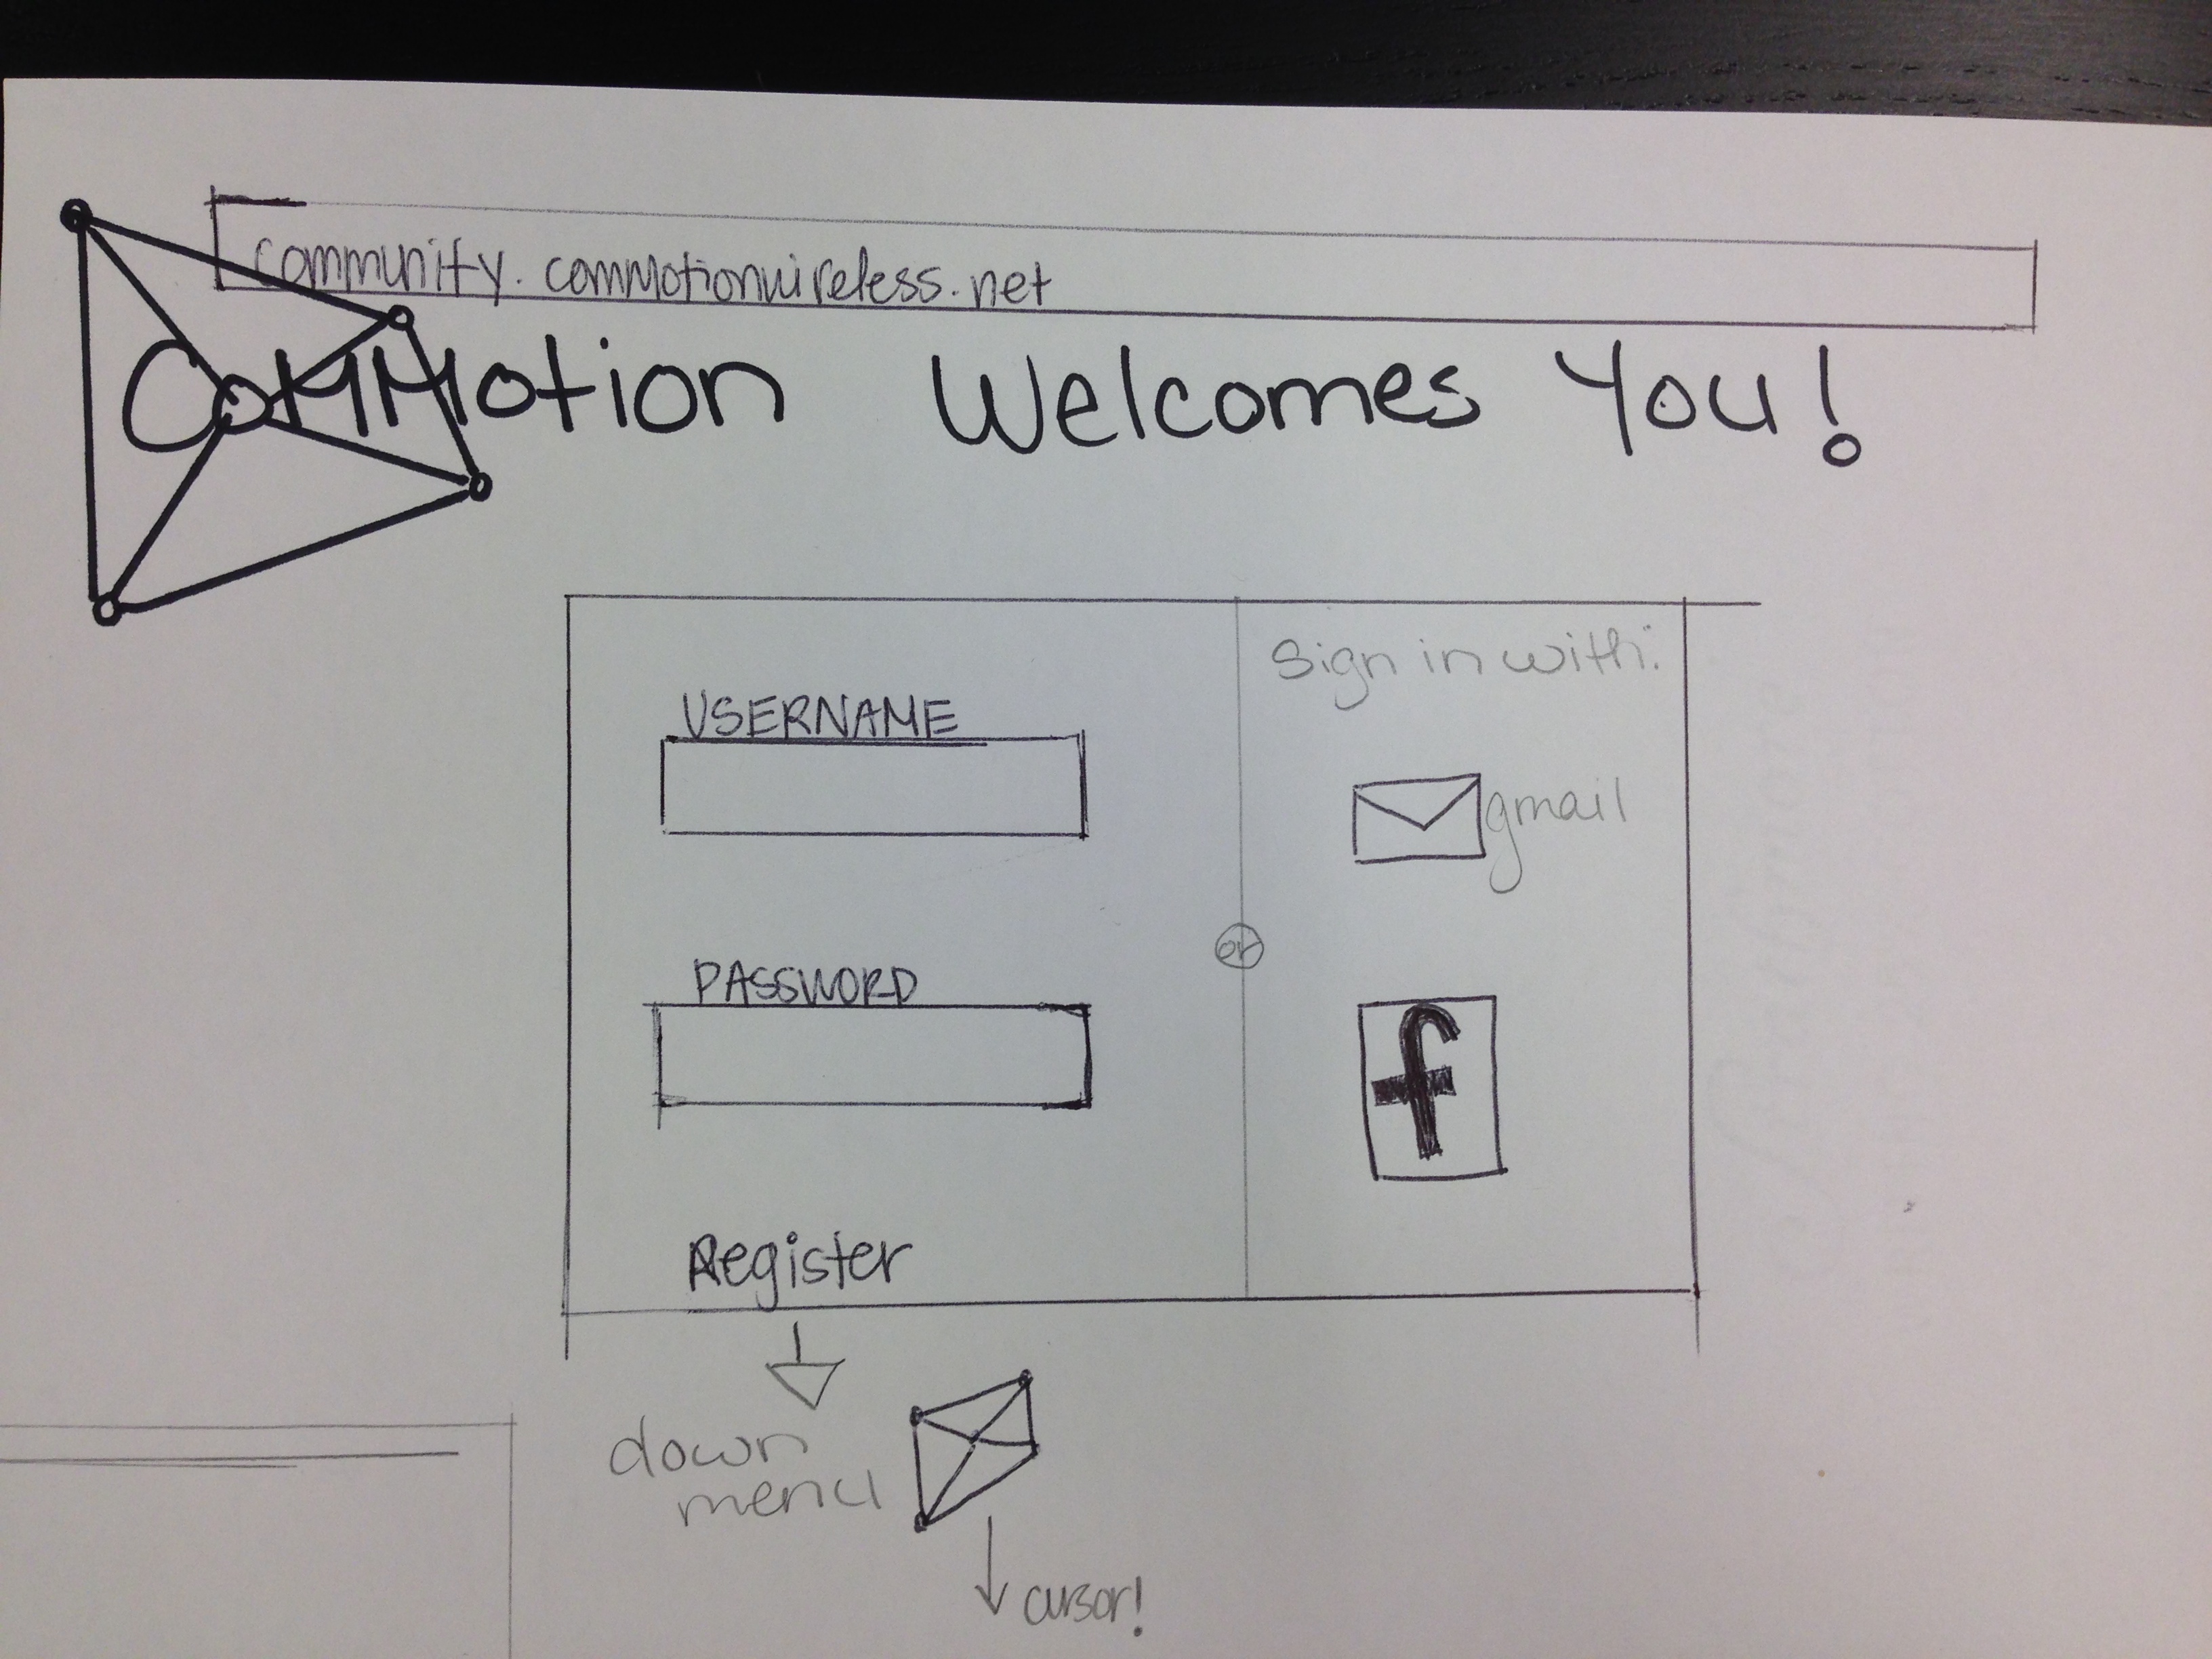 community.commotionwireless.net
Commotion Welcomes You!
USERNAME
PASSWORD
Register
or
Sign in with:
gmail
f
down
menu
cursor!